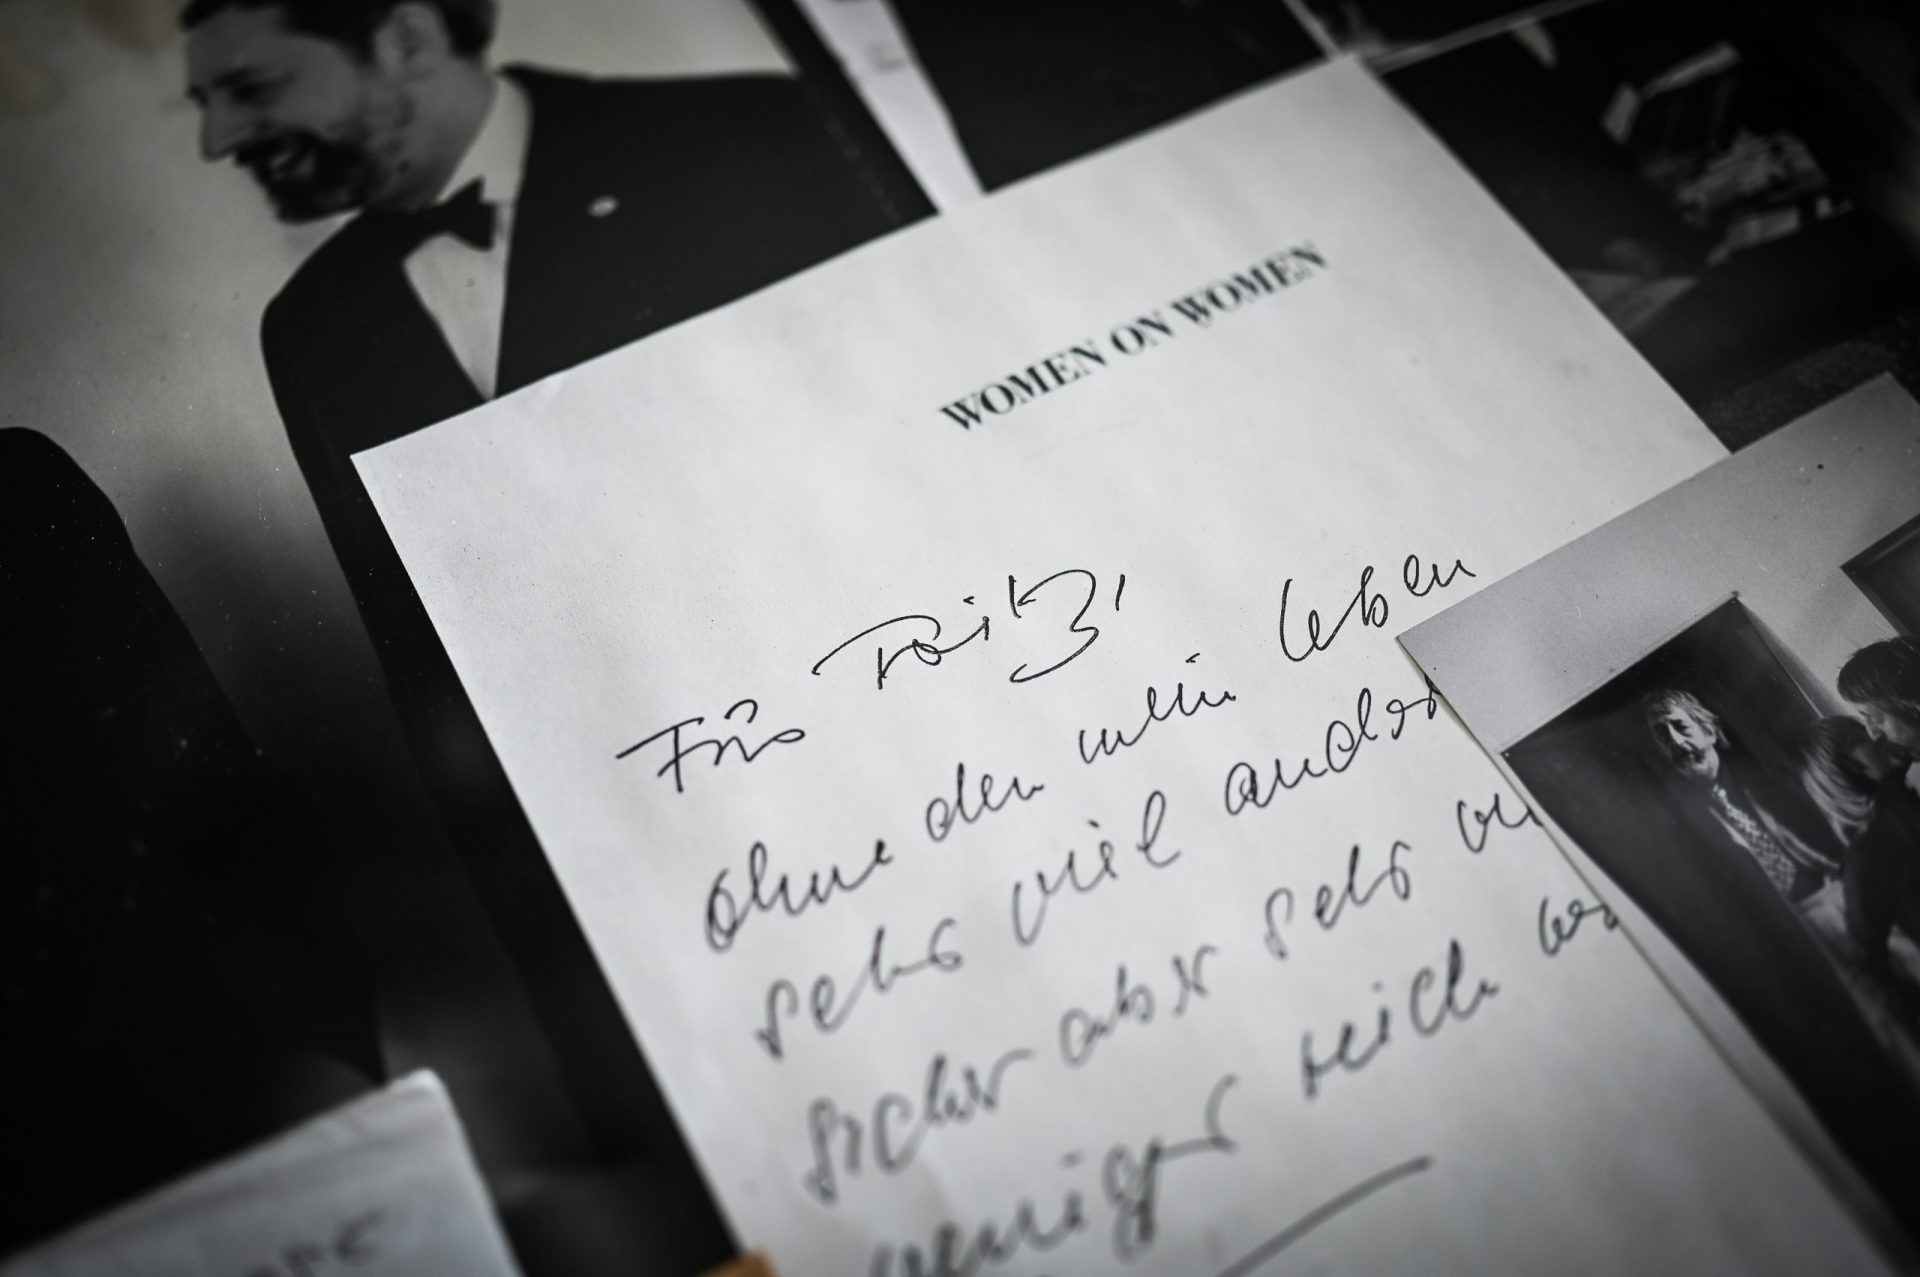 WOMEN ON WOMEN
Für Fritz,
ohne den mein leben
sehr viel ander
sicher aber sehr vi
weniger reich